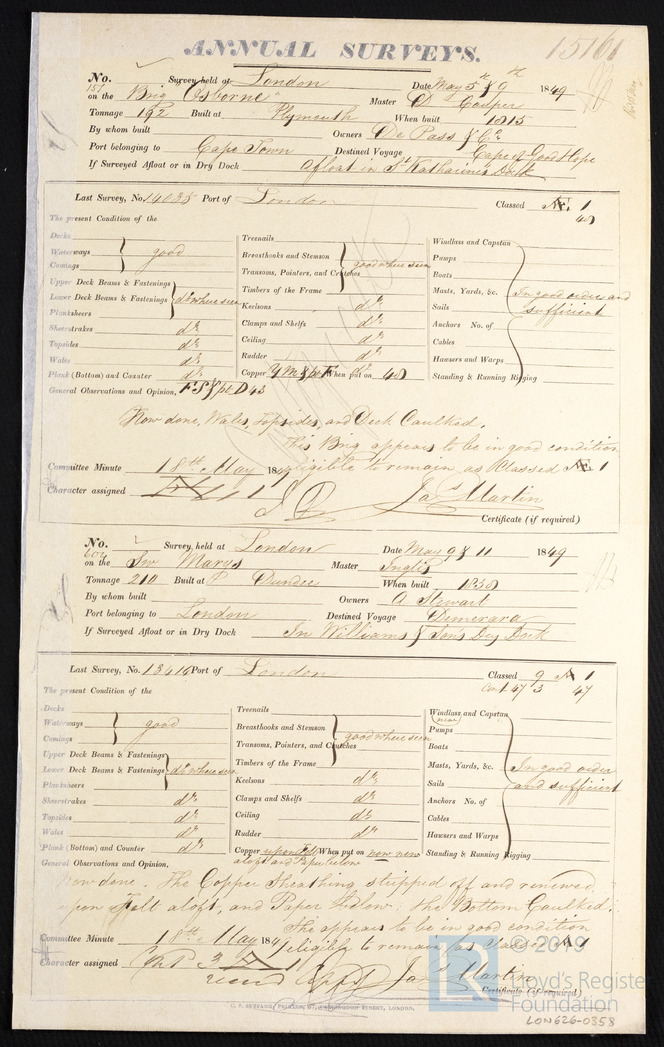 15161
ANNUAL SURVEYS.
No. 151 Survey held at London Date May 5th & 9th 1849
on the Brig "Osborne" Master D Cowper
Tonnage 192 Built at Plymouth When built 1815
By whom built Owners De Pass & Co
Port belonging to Cape Town Destined Voyage Cape of Good Hope
If Surveyed Afloat or in Dry Dock afloat in St Katharine's Dock
Last Survey, No. 14035 Port of London Classed Æ 1
48
The present Condition of the
Decks
Waterways good
Comings
Upper Deck Beams & Fastenings
Lower Deck Beams & Fastenings do where seen
Planksheers
Sheerstrakes do
Topsides do
Wales do
Plank (Bottom) and Counter do
Treenails
Breasthooks and Stemson good where seen
Transoms, Pointers, and Crutches
Timbers of the Frame
Keelsons do
Clamps and Shelfs do
Ceiling do
Rudder do
Copper YM & pt F When put on 48
Windlass and Capstan
Pumps
Boats
Masts, Yards, &c. In good order and
Sails sufficient
Anchors No. of
Cables
Hawsers and Warps
Standing & Running Rigging
General Observations and Opinion, FS & pt D 43
Now done, Wales, Topsides, and Deck Caulked.
This Brig appears to be in good condition
Committee Minute 18th May 1849 eligible to remain as Classed Æ 1
Character assigned Æ 1
Jas Martin
Certificate (if required)
No. 602 Survey held at London Date May 9 & 11 1849
on the Sw Marys Master Inglis
Tonnage 210 Built at Dundee When built 1838
By whom built Owners A Stewart
Port belonging to London Destined Voyage Demerara
If Surveyed Afloat or in Dry Dock In Williams & Sons Dry Dock
Last Survey, No. 13416 Port of London Classed 9 A 1
47 3 47
The present Condition of the
Decks
Waterways good
Comings
Upper Deck Beams & Fastenings
Lower Deck Beams & Fastenings do where seen
Planksheers
Sheerstrakes do
Topsides do
Wales do
Plank (Bottom) and Counter do
Treenails
Breasthooks and Stemson good where seen
Transoms, Pointers, and Crutches
Timbers of the Frame
Keelsons do
Clamps and Shelfs do
Ceiling do
Rudder do
Copper upon Felt When put on now new
aloft and Paper below
Windlass and Capstan
(new)
Pumps
Boats
Masts, Yards, &c. In good order
Sails and sufficient
Anchors No. of
Cables
Hawsers and Warps
Standing & Running Rigging
General Observations and Opinion.
Now done. The Copper Sheathing stripped off and renewed
upon Felt aloft, and Paper below: the Bottom Caulked.
She appears to be in good condition
Committee Minute 18th May 1849 eligible to remain as Classed A 1
Character assigned 3 A 1
Jas Martin
Certificate (if required)
© 2019
Lloyd's Register
Foundation
LON626-0358